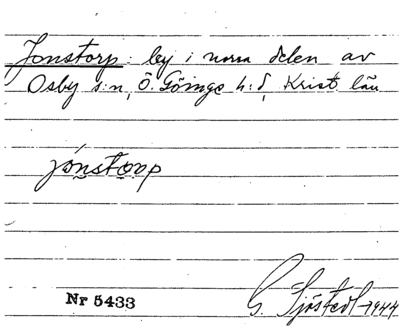 Jonstorp: by i norra delen av
Osby s:n, Ö. Göinge h:d, Krist. län
jónstorp
Nr 5433
G. Sjöstedt 1944